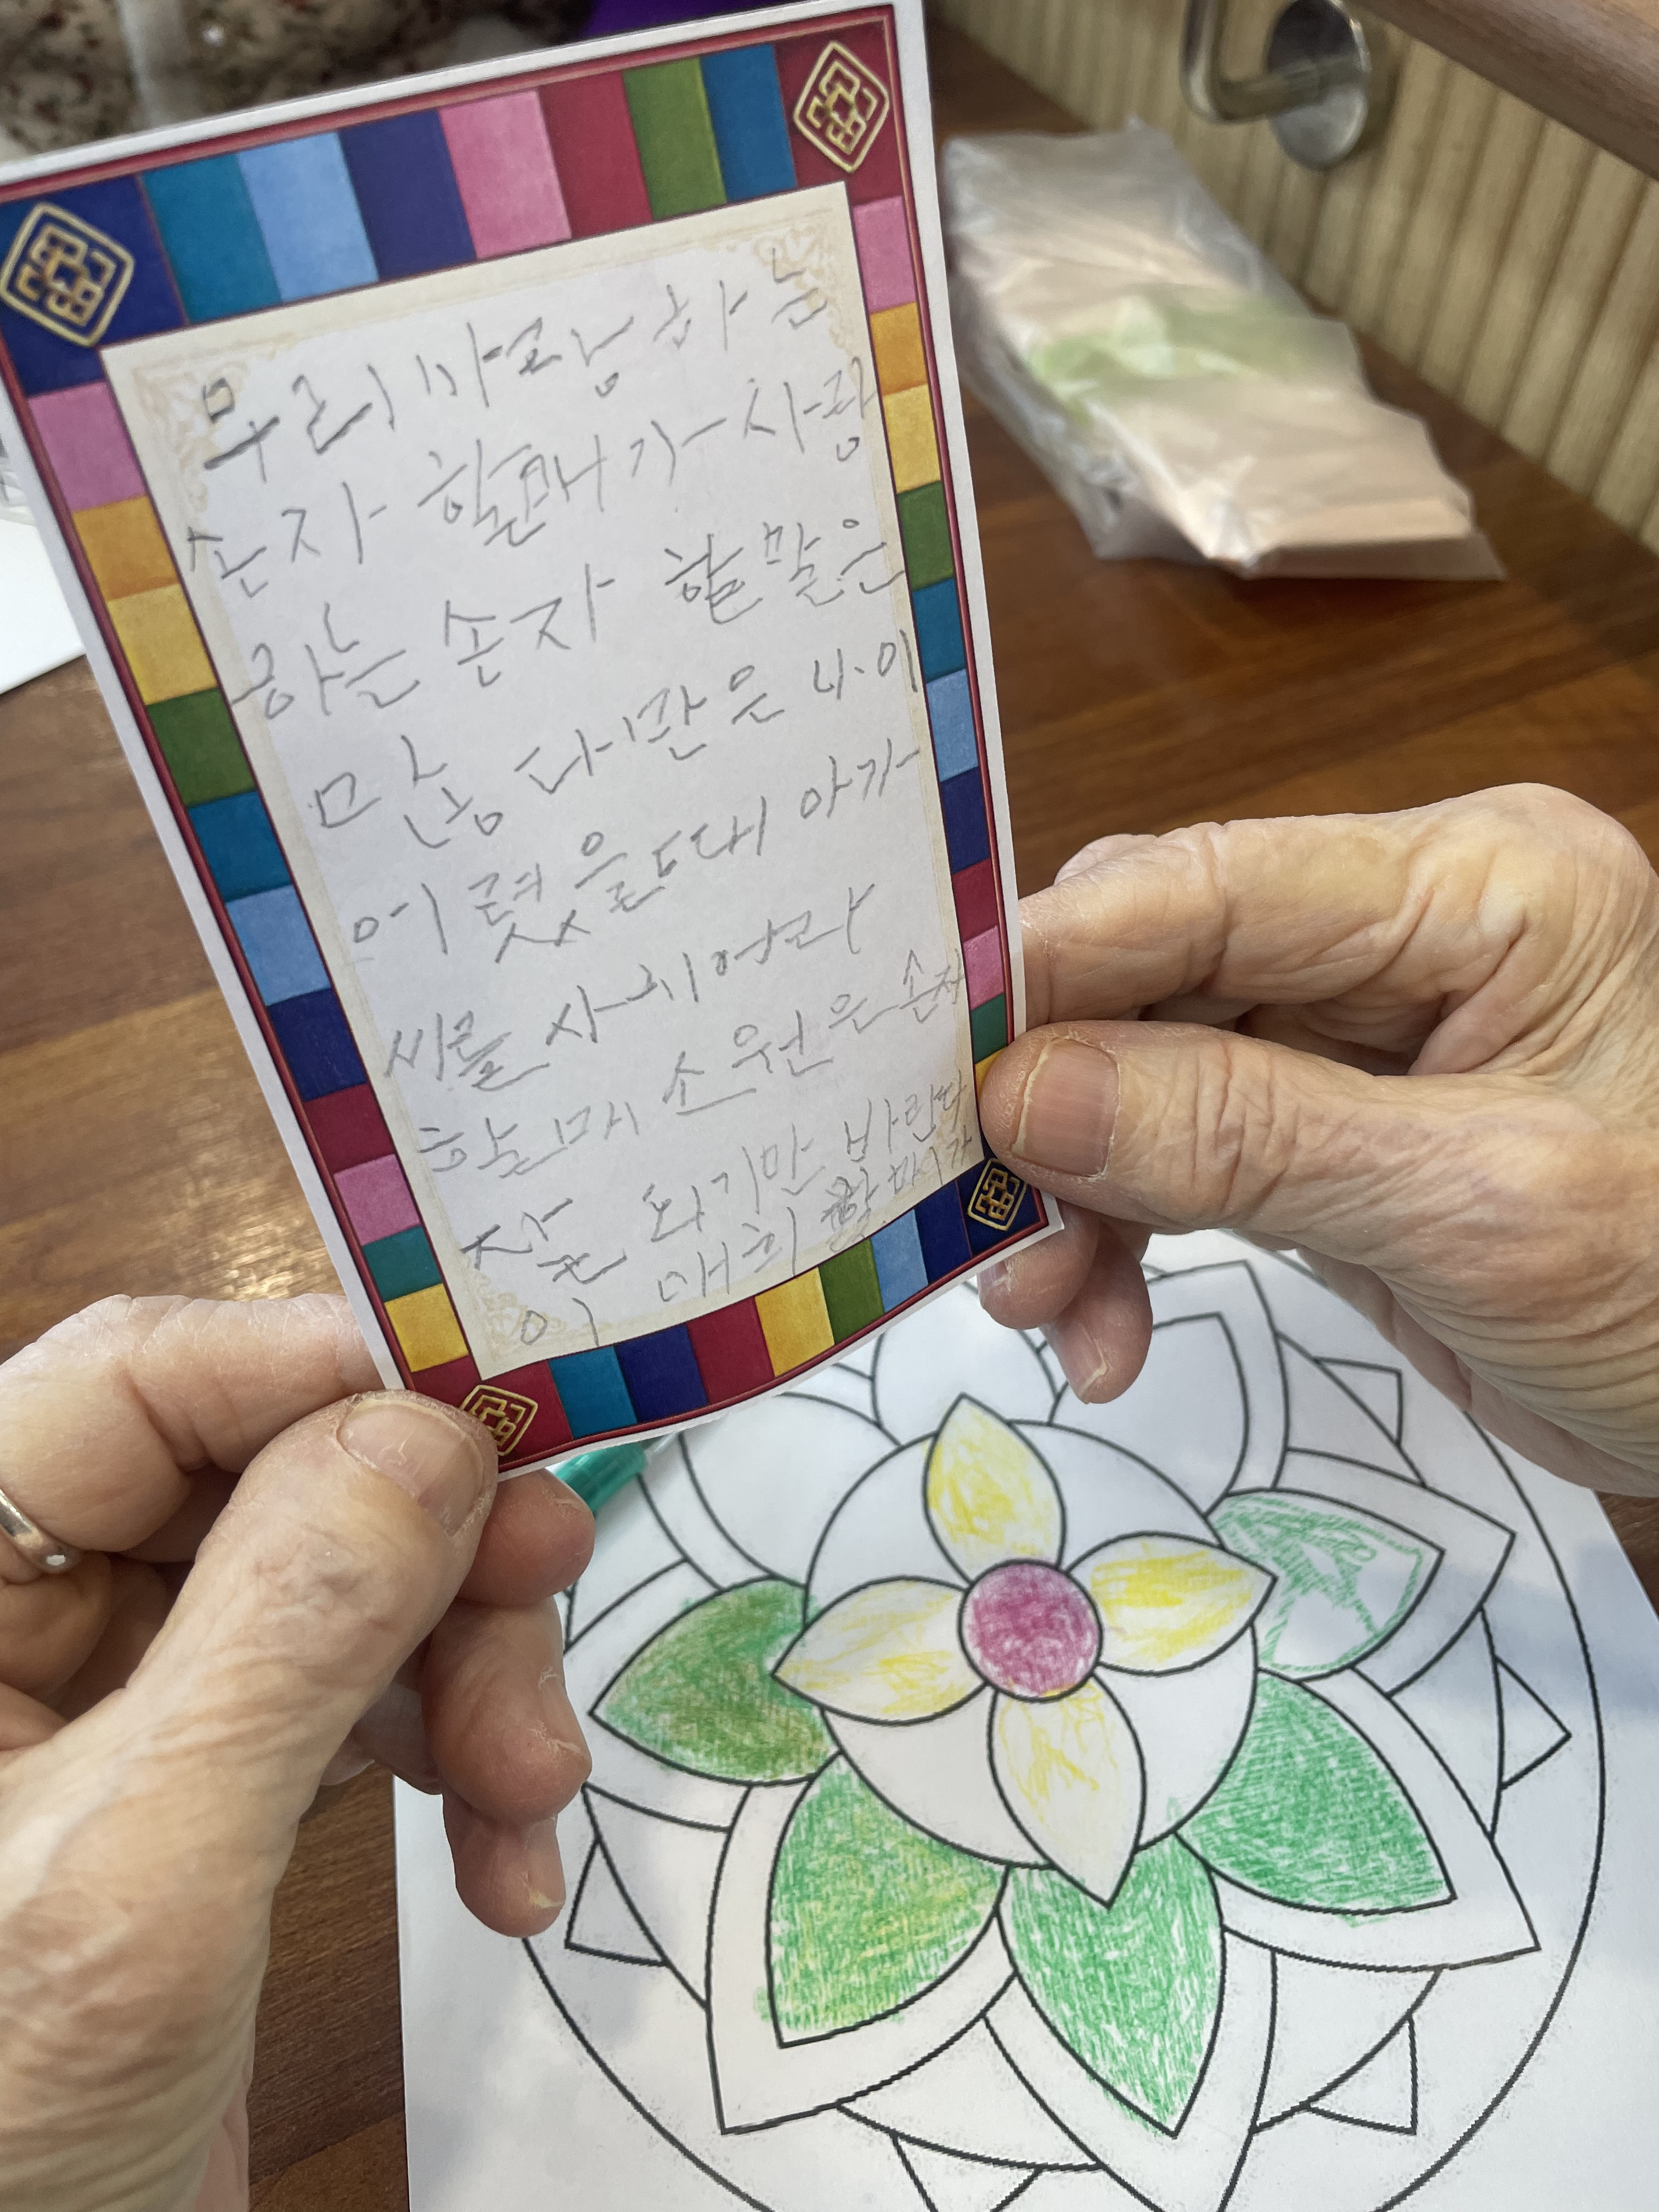 우리 바랑하는
손자 할매가 사랑
하는 손자 할말은
많농 다만은 나이
어렸을때 아가
씨를 사귀어라
할매 소원은 손자
잘 되기만 바란다
이 매희 할매가